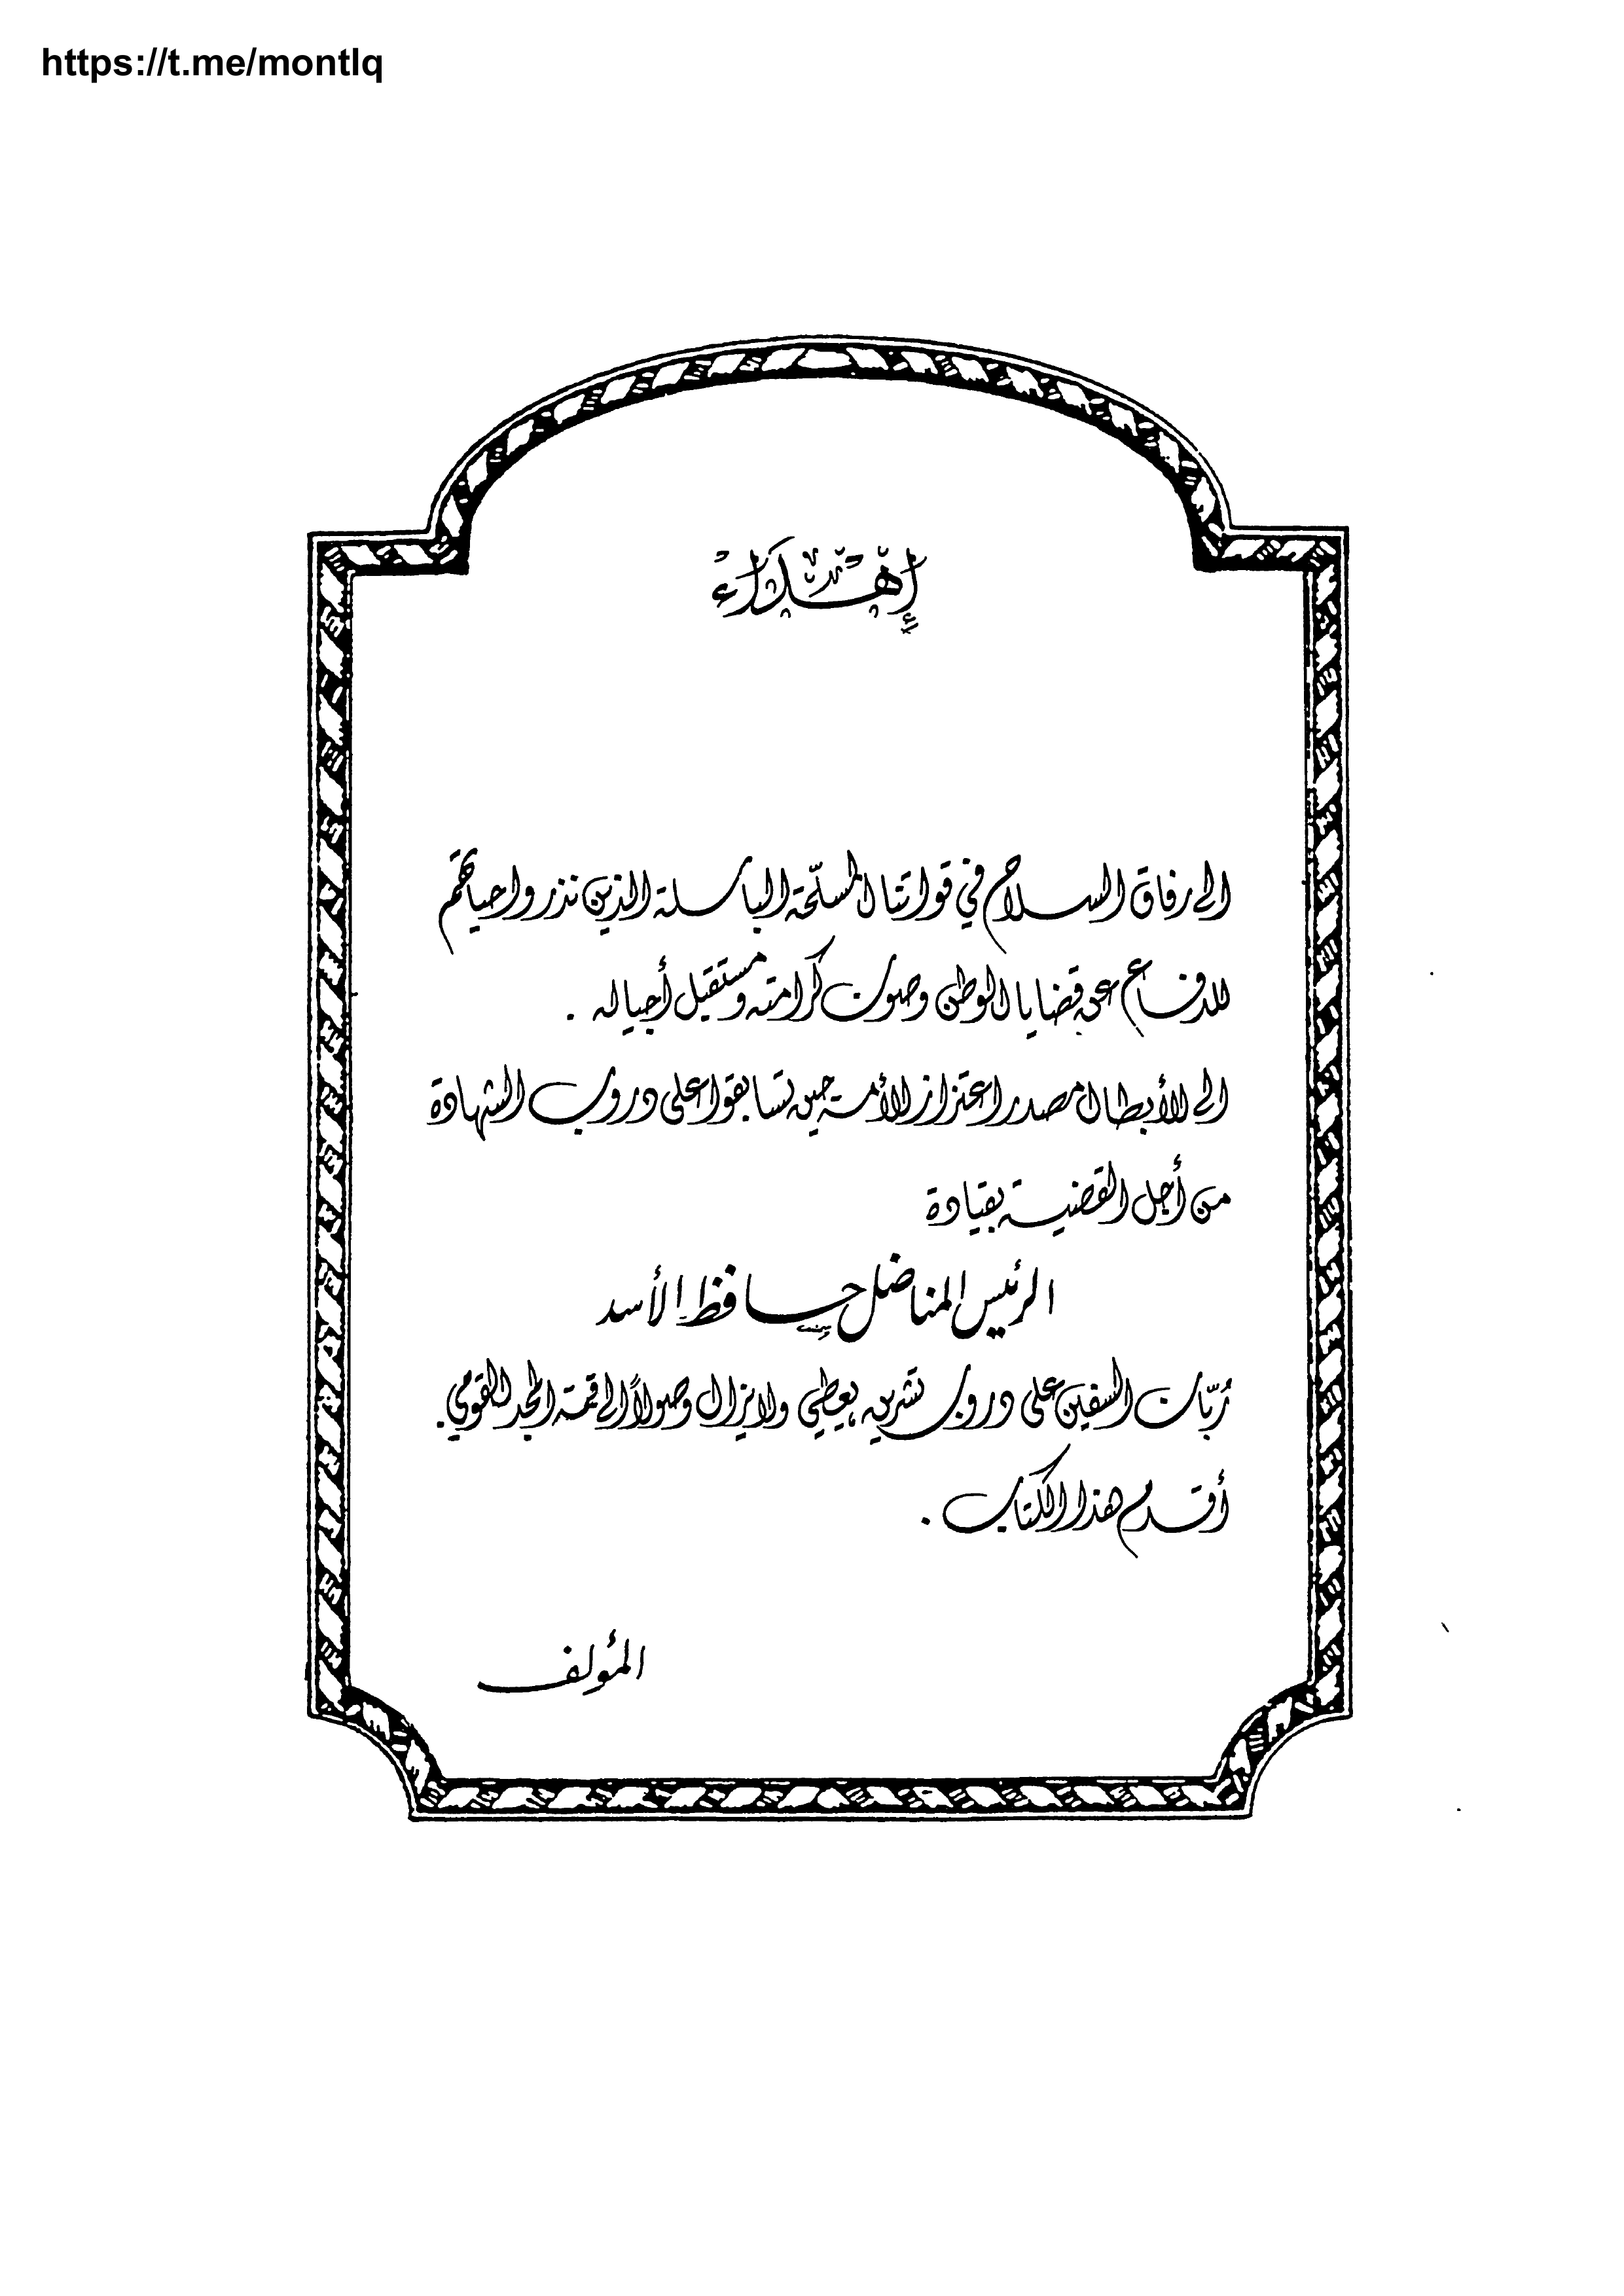 https://t.me/montlq
إهداء
الى رفاق السلاح في قواتنا المسلّحة الباسلة الذين نذروا حياتهم
للدفاع عن قضايا الوطن وصون كرامته ومستقبل أجياله .
الى الأبطال مصدر اعتزاز الأمة حين تسابقوا على دروب الشهادة
من أجل القضية بقيادة
الرئيس المناضل حافظ الأسد
رُبّان السفين على دروب تشرين يعطي ولا يزال وصولاً الى قمة المجد القومي .
أقدم هذا الكتاب .
المؤلف